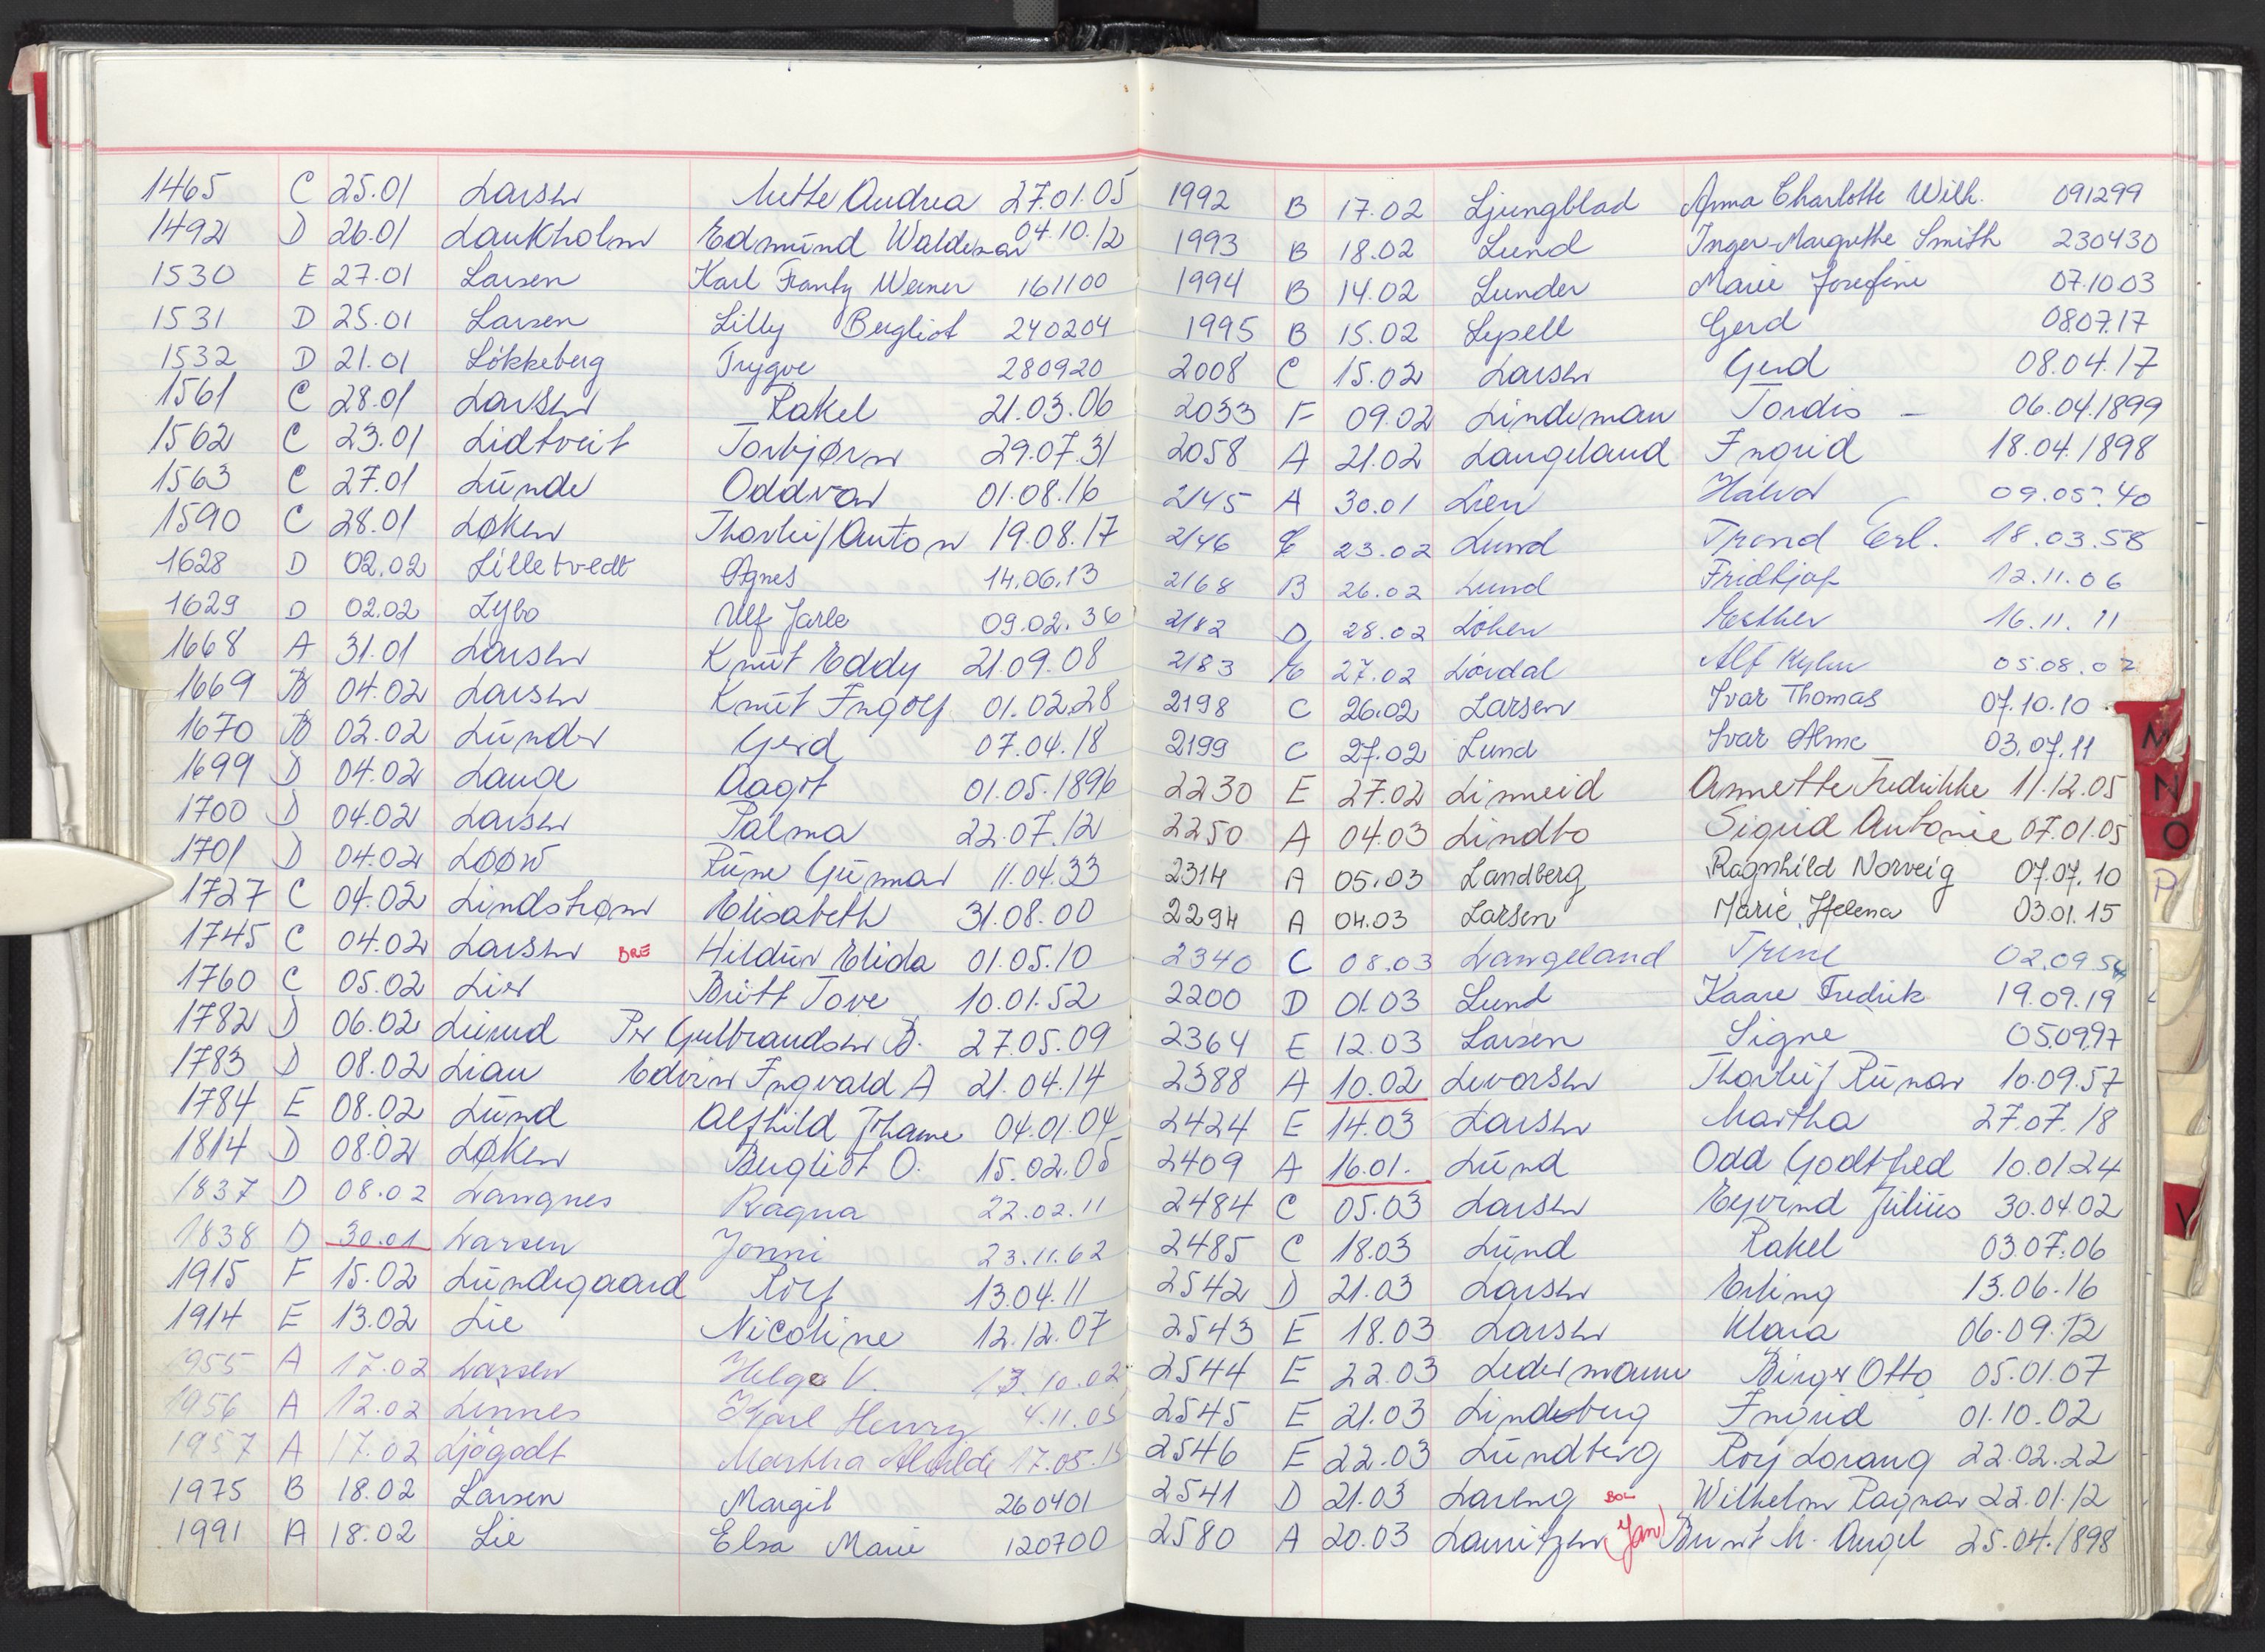 1465 C 25.01 Larsen Mette Andrea 27.01.05
1492 D 26.01 Laukholm Edmund Waldemar 04.10.12
1530 E 27.01 Larsen Karl Frantz Werner 161100
1531 D 25.01 Larsen Lilly Bergliot 240204
1532 D 21.01 Løkkeberg Trygve 280920
1561 C 28.01 Larsen Rakel 21.03.06
1562 C 23.01 Lidtveit Torbjørn 29.07.31
1563 C 27.01 Lunde Oddvar 01.08.16
1590 C 28.01 Løken Thorleif Anton 19.08.17
1628 D 02.02 Lilletvedt Agnes 14.06.13
1629 D 02.02 Lybo Ulf Jarle 09.02.36
1668 A 31.01 Larsen Knut Eddy 21.09.08
1669 B 04.02 Larsen Knut Ingolf 01.02.28
1670 B 02.02 Lunder Gerd 07.04.18
1699 D 04.02 Lange Aagot 01.05.1896
1700 D 04.02 Larsen Palma 22.07.12
1701 D 04.02 Løøw Rune Gunnar 11.04.33
1727 C 04.02 Lindstrøm Elisabeth 31.08.00
1745 C 04.02 Larsen BRE Hildur Elida 01.05.10
1760 C 05.02 Lier Britt Tove 10.01.52
1782 D 06.02 Lurud Per Gulbrandsen B. 27.05.09
1783 D 08.02 Lian Edvin Ingvald A 21.04.14
1784 E 08.02 Lund Alfhild Johanne 04.01.04
1814 D 08.02 Løken Bergliot O. 15.02.05
1837 D 08.02 Langnes Ragna 22.02.11
1838 D 30.01 Larsen Jonni 23.11.62
1915 F 15.02 Lundegaard Rolf 13.04.11
1914 E 13.02 Lie Nicoline 12.12.07
1955 A 17.02 Larsen Helge V. 13.10.02
1956 A 12.02 Linnes Karl Henry 4.11.05
1957 A 17.02 Ljøgodt Martha Alvilde 17.05.
1975 B 18.02 Larsen Margit 260401
1991 A 18.02 Lie Elsa Marie 120700
1992 B 17.02 Ljungblad Anna Charlotte Wilh. 091299
1993 B 18.02 Lund Inger-Margrethe Smith 230430
1994 B 14.02 Lunder Marie Josefine 07.10.03
1995 B 15.02 Lysell Gerd 080717
2008 C 15.02 Larsen Gerd 08.04.17
2033 F 09.02 Lindeman Tordis – 06.04.1899
2058 A 21.02 Langeland Ingrid 18.04.1898
2145 A 30.01 Lien Halvd 09.05.40
2146 E 23.02 Lund Trond Erl. 18.03.58
2168 B 26.02 Lund Fridtjof 12.11.06
2182 D 28.02 Løken Esther 16.11.11
2183 E 27.02 Lørdal Alf 05.08.02
2198 C 26.02 Larsen Ivar Thomas 07.10.10
2199 C 27.02 Lund Ivar Arne 03.07.11
2230 E 27.02 Linneid Annette Fredrikke 11.12.05
2250 A 04.03 Lindbo Sigrid Antonie 07.01.05
2314 A 05.03 Landberg Ragnhild Norveig 07.07.10
2294 A 04.03 Larsen Marie Helena 03.01.15
2340 C 08.03 Langeland Trine 02.09.54
2200 D 01.03 Lund Kaare Fredrik 19.09.19
2364 E 12.03 Larsen Signe 05.09.97
2388 A 10.02 Levorsen Thorleif Runar 10.09.57
2424 E 14.03 Larsen Martha 27.07.18
2409 A 16.01. Lund Odd Godtfred 10.01 24
2484 C 05.03 Larsen Eyvind Julius 30.04.02
2485 C 18.03 Lund Rakel 03.07.06
2542 D 21.03 Larsen Erling 13.06.16
2543 E 18.03 Larsen Klara 06.09.12
2544 E 22.03 Ledermann Birger Otto 05.01.07
2545 E 21.03 Lindeberg Ingrid 01.10.02
2546 E 22.03 Lundberg Roy Lorang 22.02.22
2541 D 21.03 Lareng Wilhelm Ragnar 22.01.12
2580 A 20.03 Lauritzen (Jan) Bernt M. Angel 25.04.1898
M
N
O
P
V